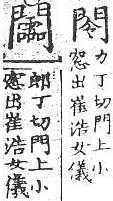 閝
力丁切門上小
窓出崔浩女儀
郎丁切門上小
窓出崔浩女儀